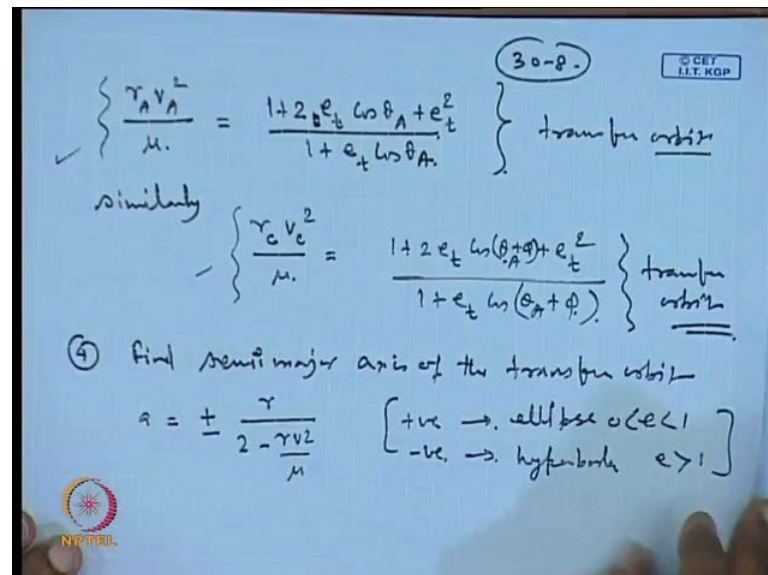 30-8.
© CET
I.I.T. KGP
r_A v_A^2 / μ. = (1 + 2 e_t cos θ_A + e_t^2) / (1 + e_t cos θ_A.) } transfer orbit
similarly
r_c v_c^2 / μ. = (1 + 2 e_t cos(θ_A + φ) + e_t^2) / (1 + e_t cos(θ_A + φ).) } transfer orbit
④ Find semi major axis of the transfer orbit
a = ± r / (2 - rv2/μ) [ +ve → ellipse 0<e<1
-ve. → hyperbola e>1 ]
NPTEL